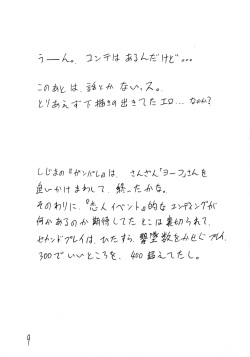 うーん。コンテは あるんだけど…
このあとは、話とか ないッス。
とりあえず下描きの出きてたエロ…なのか?
しじまの『ガンバレ』は、さんざん『ヨーコ』さんを
追いかけまわして、終ったかな。
そのわりに、『恋人イベント』的なエンディングが
何かあるのか期待してたとこは裏切られて、
セカンドプレイは、ひたすら、撃墜数をみせじプレイ、
300でいいところを、400超えてたし。
9